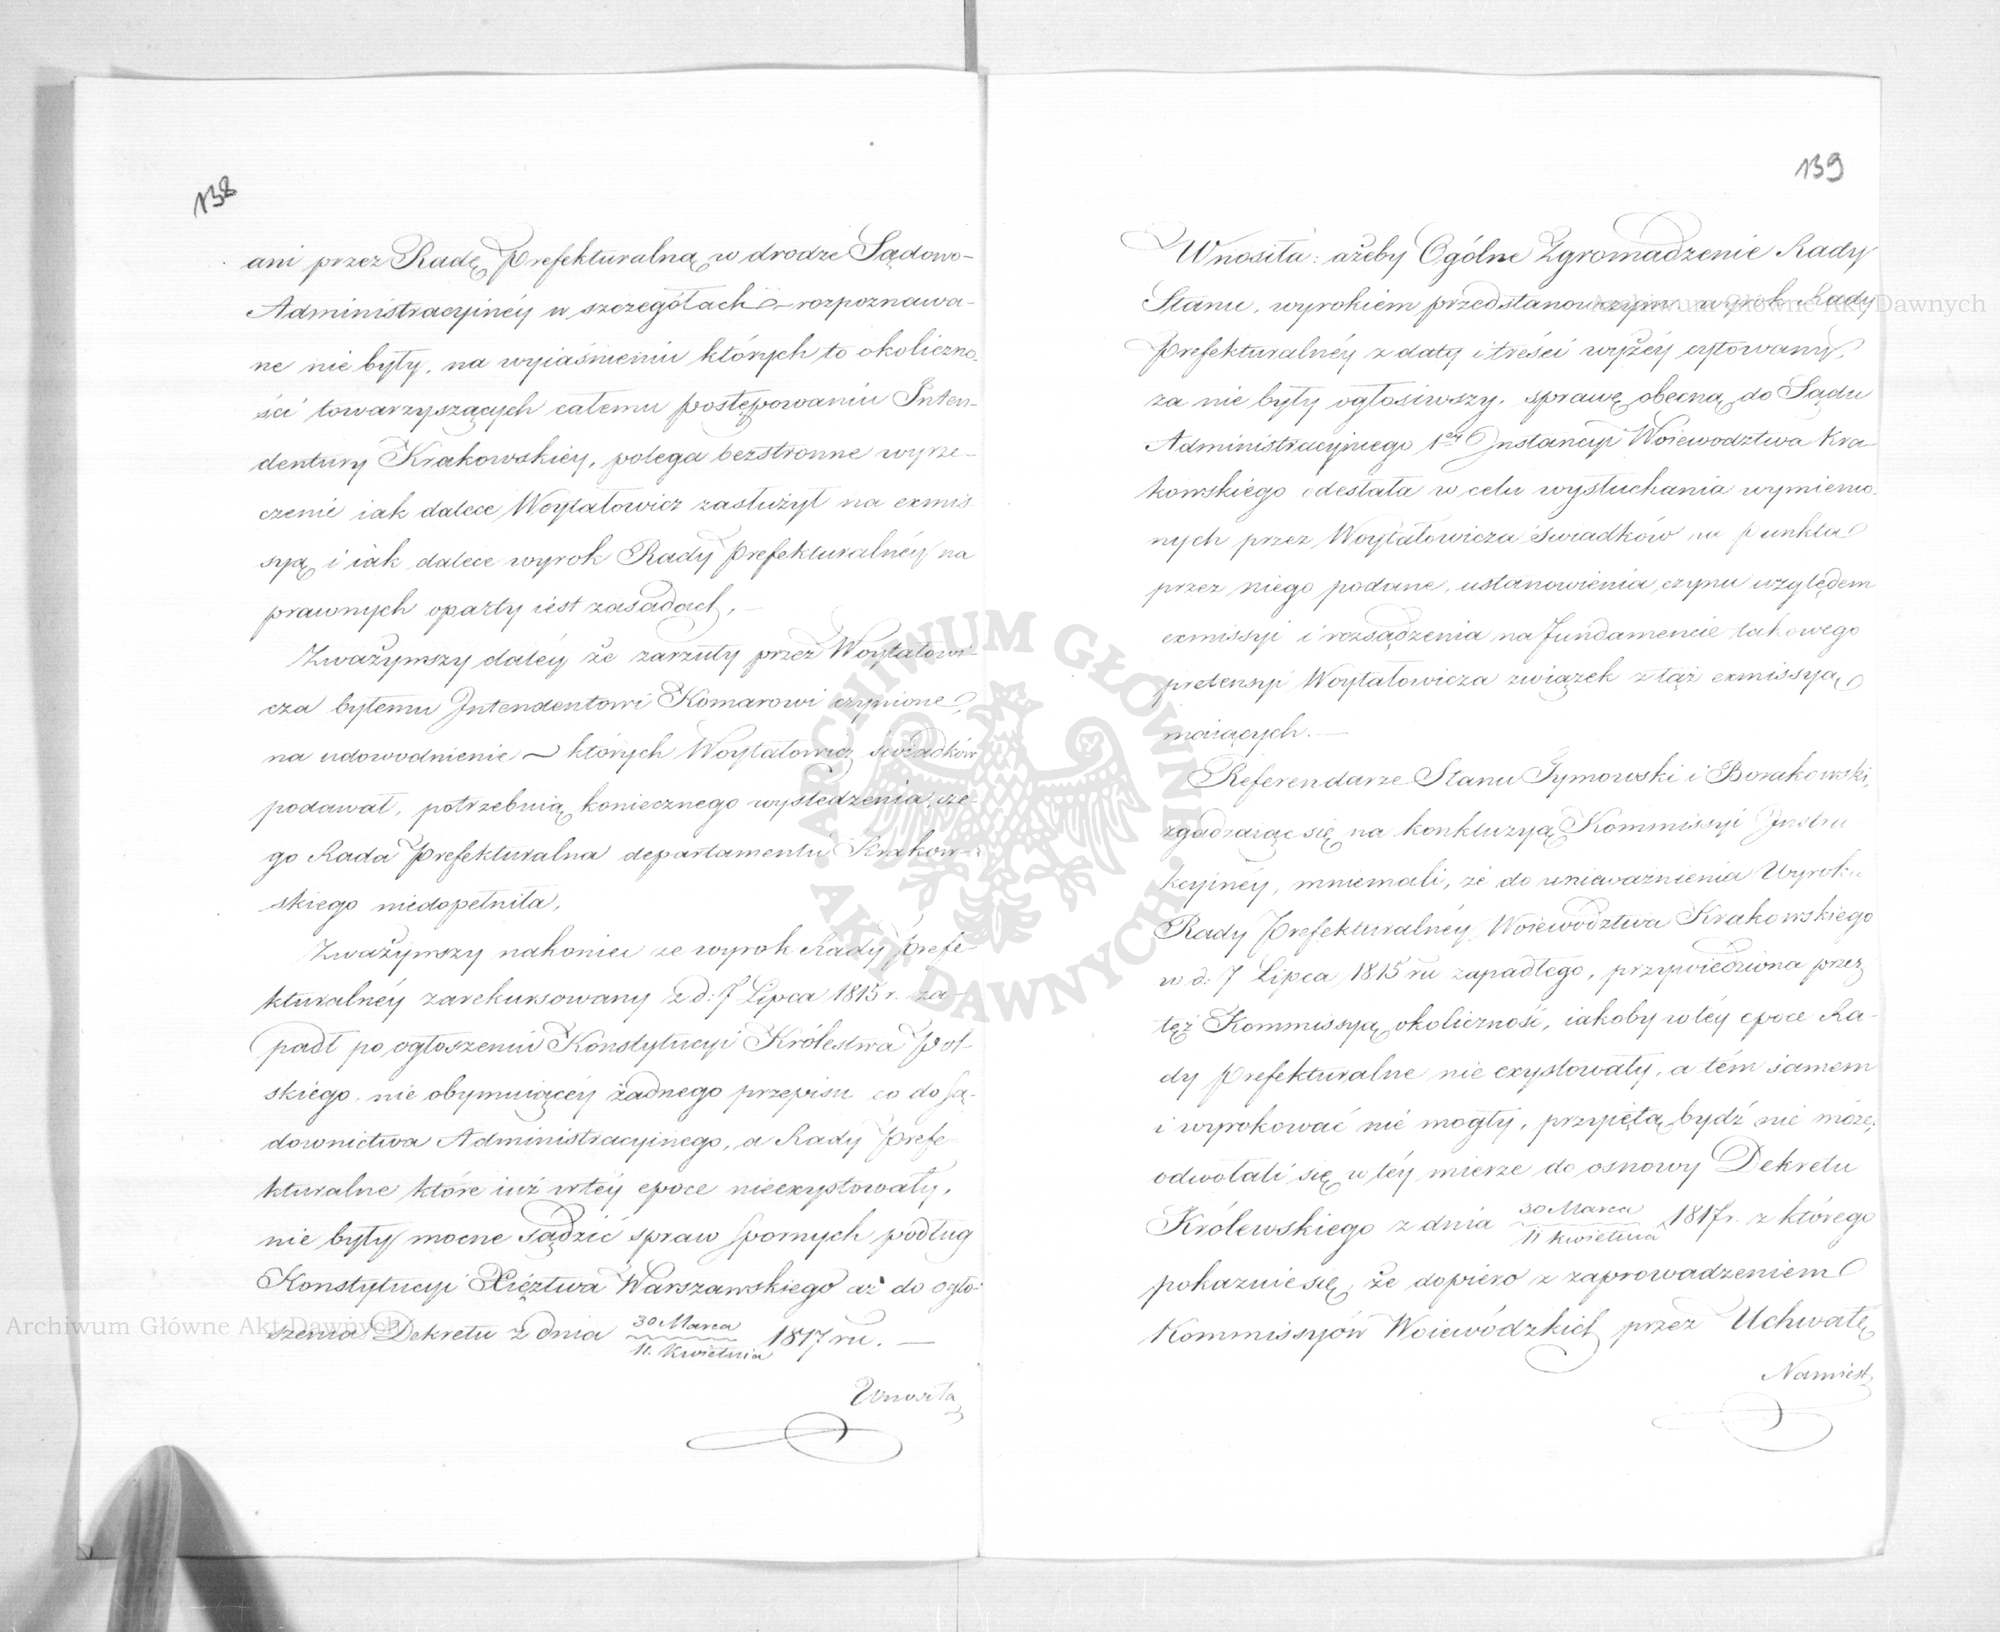 138
ani przez Radę Prefekturalną w drodze Sądowo-
Administracyinéy w szczegółach rozpoznawa-
ne nie były, na wyiaśnieniu których to okoliczno-
ści towarzyszących całemu postępowaniu Inten-
dentury Krakowskiéy, polega bezstronne wyrze-
czenie iak dalece Woytałowicz zasłużył na exmis
syą i iak dalece wyrok Rady Prefekturalnéy na
prawnych oparty iest zasadach,
Zważywszy daléy że zarzuty przez Woytałowi-
cza byłemu Intendentowi Komarowi czynione,
na udowodnienie których Woytałowicz świadków
podawał, potrzebuią koniecznego wyśledzenia, cze-
go Rada Prefekturalna departamentu Krakow-
skiego niedopełniła,
Zważywszy nakoniec że wyrok Rady Prefe
kturalnéy zarekursowany z d: 7 Lipca 1815 r. za-
padł po ogłoszeniu Konstytucyi Królestwa Pol-
skiego, nie obymuiącéy żadnego przepisu co do Są-
downictwa Administracyinego, a Rady Prefe
kturalne które iuż w téy epoce nieexystowały,
nie były mocne sądzić spraw spornych podług
Konstytucyi Xięztwa Warszawskiego aż do ogło-
szenia Dekretu z dnia 30 Marca 1817 ru.
11. Kwietnia
Wnosiła
139
Wnosiła: ażeby Ogólne Zgromadzenie Rady
Stanu, wyrokiem przedstanowczym wyrok Rady
Prefekturalnéy z daty i treści wyżéy cytowany,
za nie były ogłosiwszy, sprawę obecną do Sądu
Administracyinego 1éy Instancyi Woiewodztwa Kra-
kowskiego odesłała w celu wysłuchania wymienio-
nych przez Woytałowicza świadków na punkta
przez niego podane, ustanowienia czynu względem
exmissyi i rozsądzenia na fundamencie takowego
pretensyi Woytałowicza związek z tąż exmissyą
maiących.
Referendarze Stanu Tymowski i Borakowski,
zgadzaiąc się na konkluzyą Kommissyi Instru
kcyinéy, mniemali, że do unieważnienia Wyroku
Rady Prefekturalnéy Woiewodztwa Krakowskiego
w d: 7 Lipca 1815 ru zapadłego, przywiedziona przez
tęż Kommissyą okoliczność, iakoby w téy epoce Ra-
dy Prefekturalne nie exystowały, a tém samem
i wyrokować nie mogły, przyiętą bydź nie może,
odwołali się w téy mierze do osnowy Dekretu
Królewskiego z dnia 30 Marca 1817 r. z którego
11 Kwietnia
pokazuie się, że dopiero z zaprowadzeniem
Kommissyów Woiewódzkich przez Uchwałę
Namiest
Archiwum Główne Akt Dawnych
Archiwum Główne Akt Dawnych
ARCHIWUM GŁÓWNE
AKT DAWNYCH